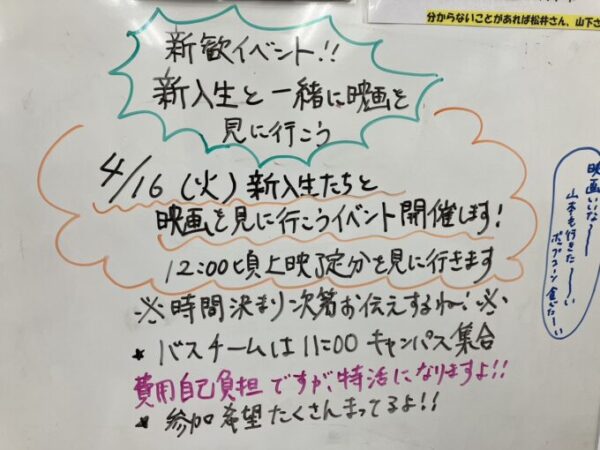 分からないことがあれば松井さん、山下さ
新歓イベント!!
新入生と一緒に映画を
見に行こう
4/16 (火) 新入生たちと
映画を見に行こうイベント開催します!
12:00頃上映予定分を見に行きます
※時間決まり次第お伝えするね!※
★ バスチームは11:00 キャンパス集合
費用自己負担ですが、特活になりますよ!!
★ 参加希望たくさんまってるよ!!
映画いいな〜
山本も行きた〜〜い
ポップコーン食べた〜い